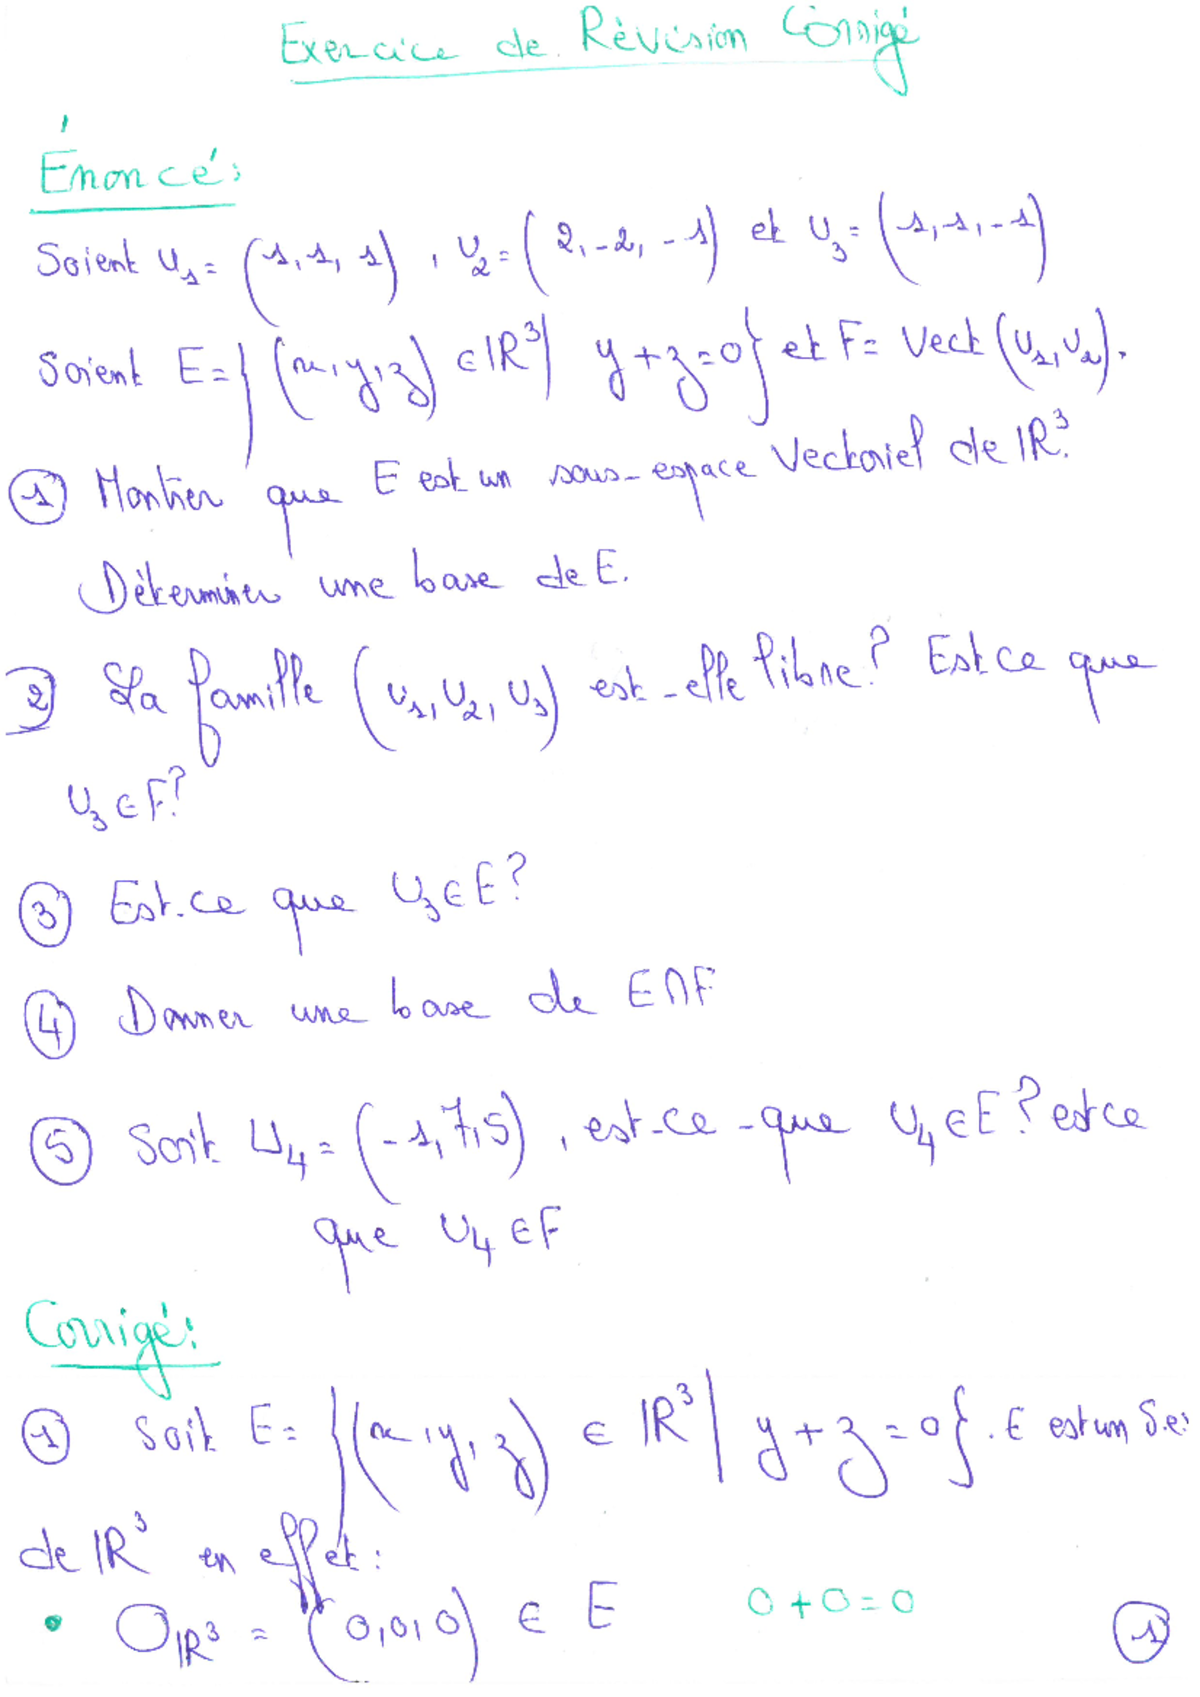 Exercice de Révision Corrigé
Énoncé:
Soient u₁=(1,1,1), u₂=(2,-2,-1) et u₃=(1,1,-1)
Soient E={(x,y,z)∈ℝ³| y+z=0} et F=Vect(u₁,u₂).
① Montrer que E est un sous-espace Vectoriel de ℝ³.
Déterminer une base de E.
② La famille (u₁,u₂,u₃) est-elle libre? Est ce que
u₃∈F?
③ Est-ce que u₃∈E?
④ Donner une base de E∩F
⑤ Soit u₄=(-1,7,5), est-ce-que u₄∈E? est ce
que u₄∈F
Corrigé:
① Soit E={(x,y,z)∈ℝ³| y+z=0}. E est un
de ℝ³ en effet:
• 0ℝ³=(0,0,0)∈E 0+0=0
①